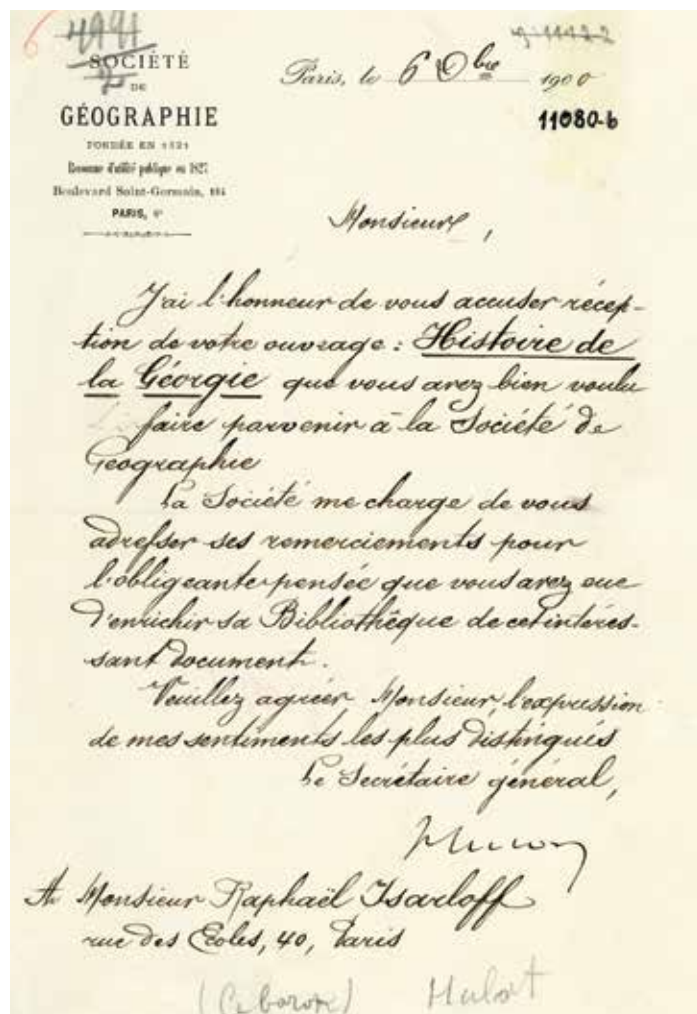 4991
2
SOCIÉTÉ
DE
GÉOGRAPHIE
FONDÉE EN 1821
Reconnue d'utilité publique en 1827
Boulevard Saint-Germain, 184
PARIS, 6e
Paris, le 6 Obre 1900
11080-b
Monsieur,
J'ai l'honneur de vous accuser récep-
tion de votre ouvrage : Histoire de
la Géorgie que vous avez bien voulu
faire parvenir à la Société de
Géographie
La Société me charge de vous
adresser ses remerciements pour
l'obligeante pensée que vous avez eue
d'enrichir sa Bibliothèque de cet intéres-
sant document.
Veuillez agréer Monsieur, l'expression
de mes sentiments les plus distingués
Le Secrétaire général,
A Monsieur Raphaël Isarloff
rue des Ecoles, 40, Paris
(Le baron) Hulot